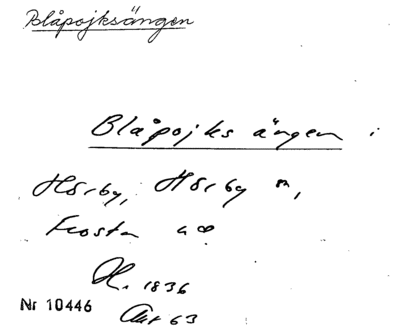 Blåpojksängen
Blåpojks ängen i
Hörby, Hörby sn,
Frosta
H. 1836
Nr 10446
Akt 63